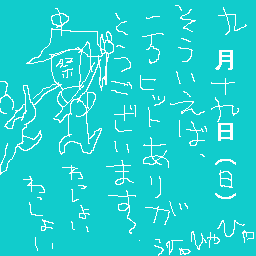 九月十九日(日)
そういえば、
一万ヒットありが
とうございます〜
祭
わっしょい
わっしょい